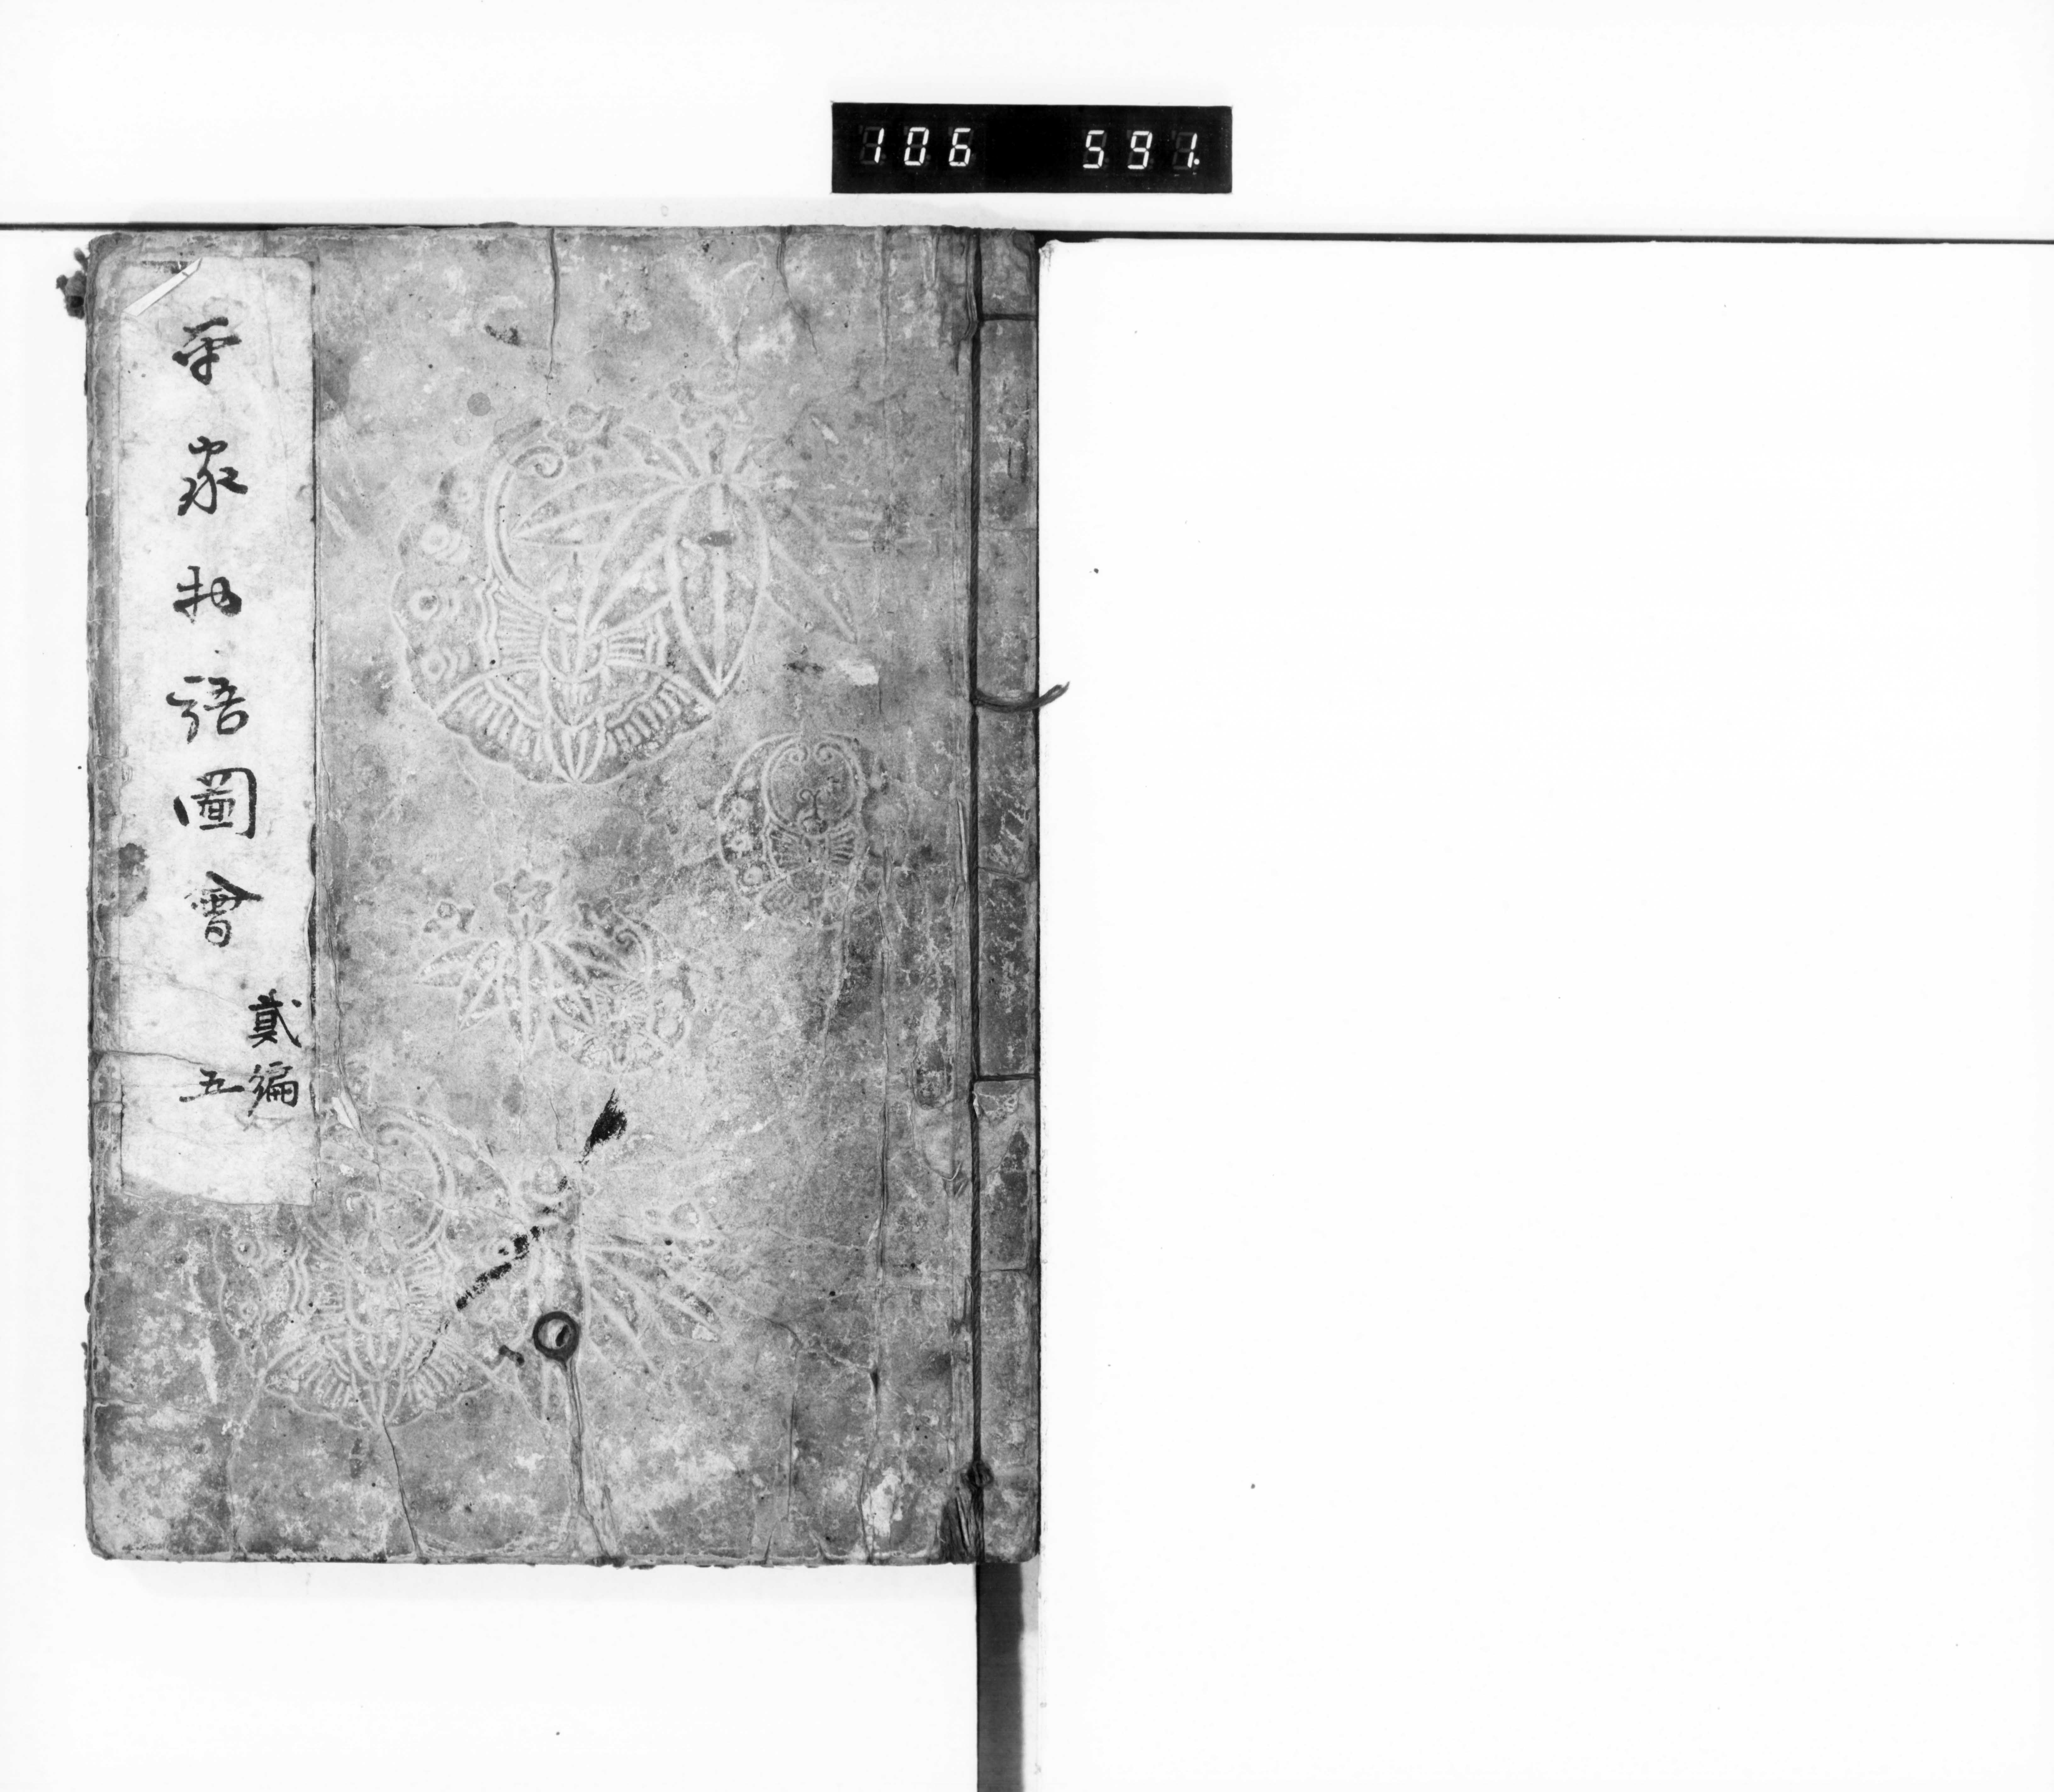 106 591.
平家物語圖會
貳編
五